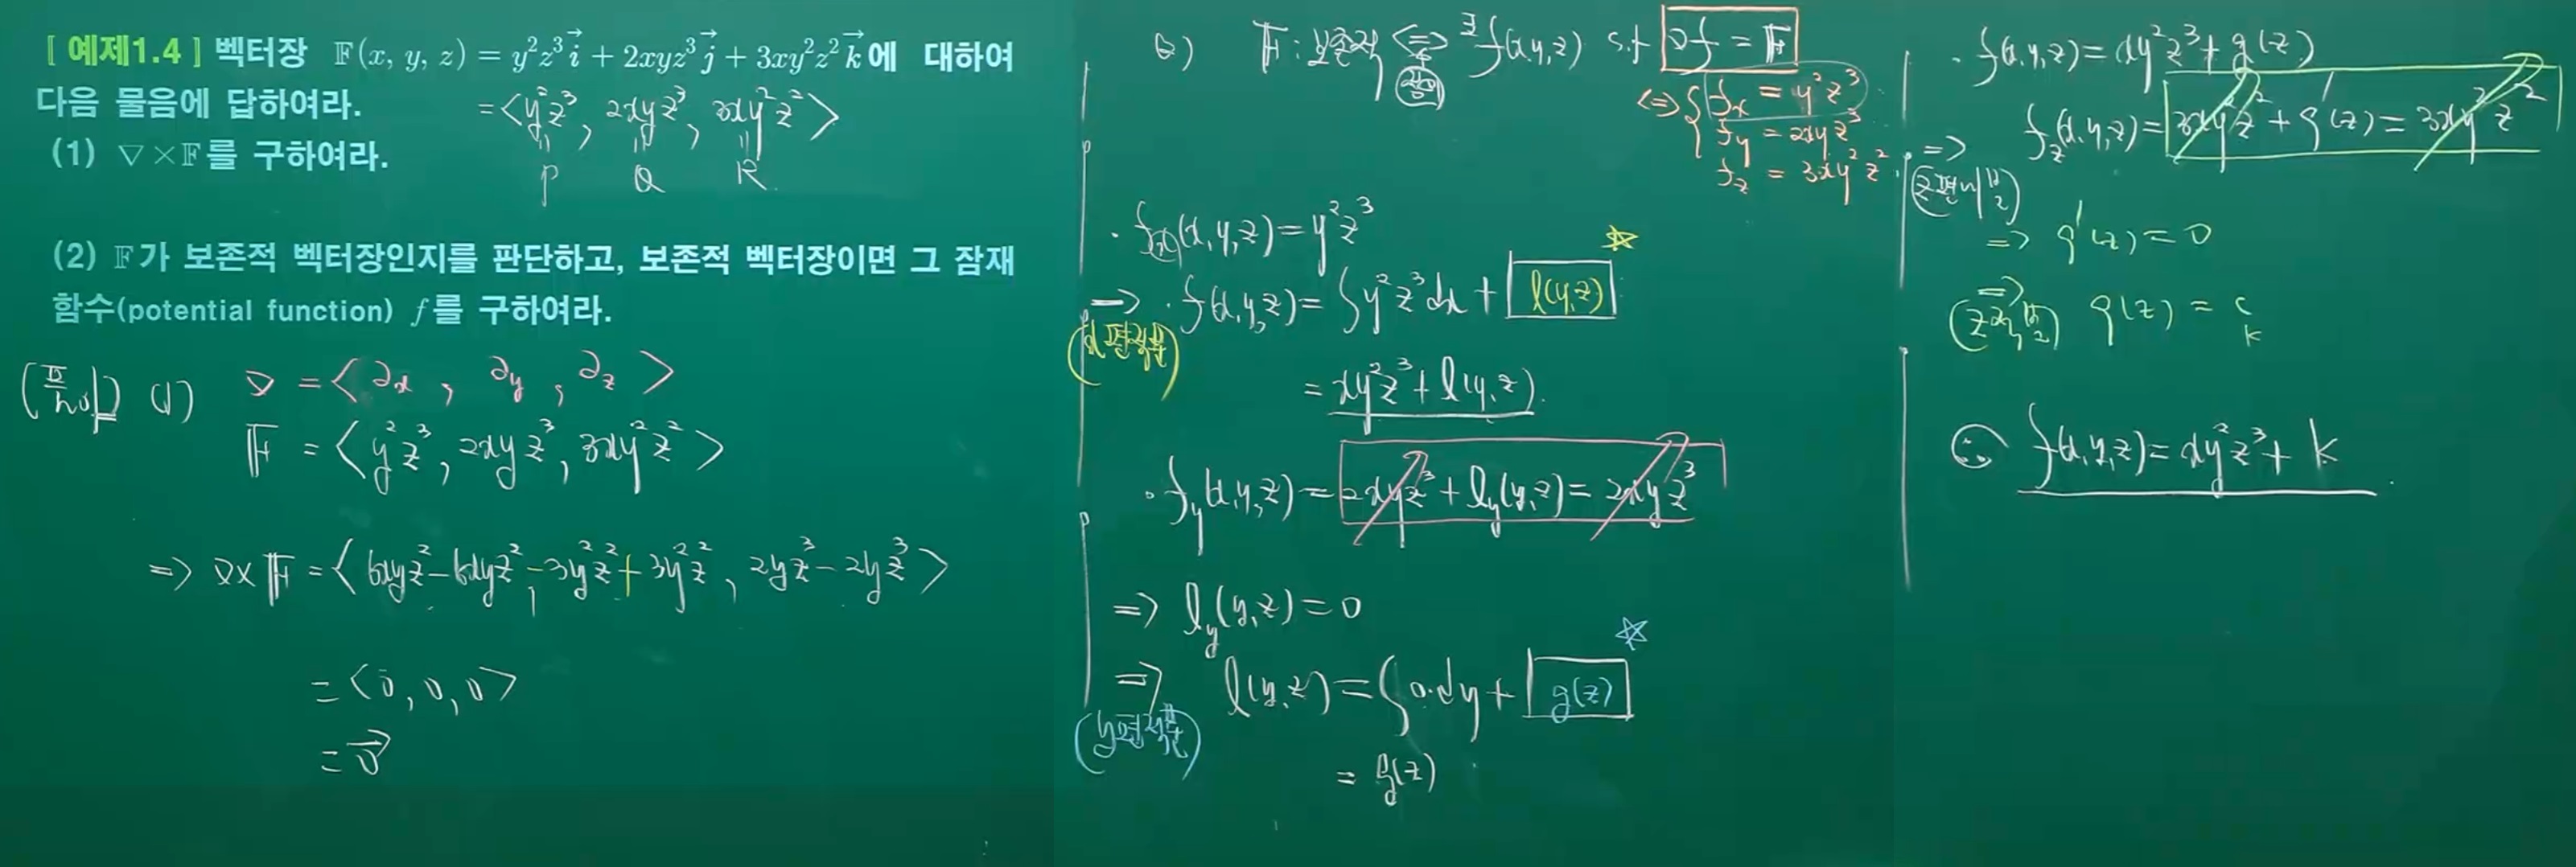 [ 예제1.4 ] 벡터장 𝔽(x, y, z) = y²z³i⃗ + 2xyz³j⃗ + 3xy²z²k⃗에 대하여
다음 물음에 답하여라.
= <y²z³, 2xyz³, 3xy²z²>
P Q R
(1) ▽×𝔽를 구하여라.
(2) 𝔽가 보존적 벡터장인지를 판단하고, 보존적 벡터장이면 그 잠재
함수(potential function) f를 구하여라.
(풀이) (1) ▽ = <∂x, ∂y, ∂z>
𝔽 = <y²z³, 2xyz³, 3xy²z²>
=> ▽×𝔽 = <6xyz²-6xyz², -3y²z²+3y²z², 2yz³-2yz³>
= <0, 0, 0>
= 0⃗
2) 𝔽 : 보존적 <=> ∃f(x,y,z) s.t ▽f = 𝔽
<=> { fx = y²z³
fy = 2xyz³
fz = 3xy²z²
· fx(x,y,z) = y²z³
=> · f(x,y,z) = ∫y²z³dx + l(y,z)
(x편적분)
= xy²z³ + l(y,z).
· fy(x,y,z) = 2xyz³ + ly(y,z) = 2xyz³
=> ly(y,z) = 0
=> l(y,z) = ∫0·dy + g(z)
(y편적분)
= g(z)
· f(x,y,z) = xy²z³ + g(z)
=> fz(x,y,z) = 3xy²z² + g'(z) = 3xy²z²
(z편미분)
=> g'(z) = 0
=> g(z) = c
k
∴ f(x,y,z) = xy²z³ + k